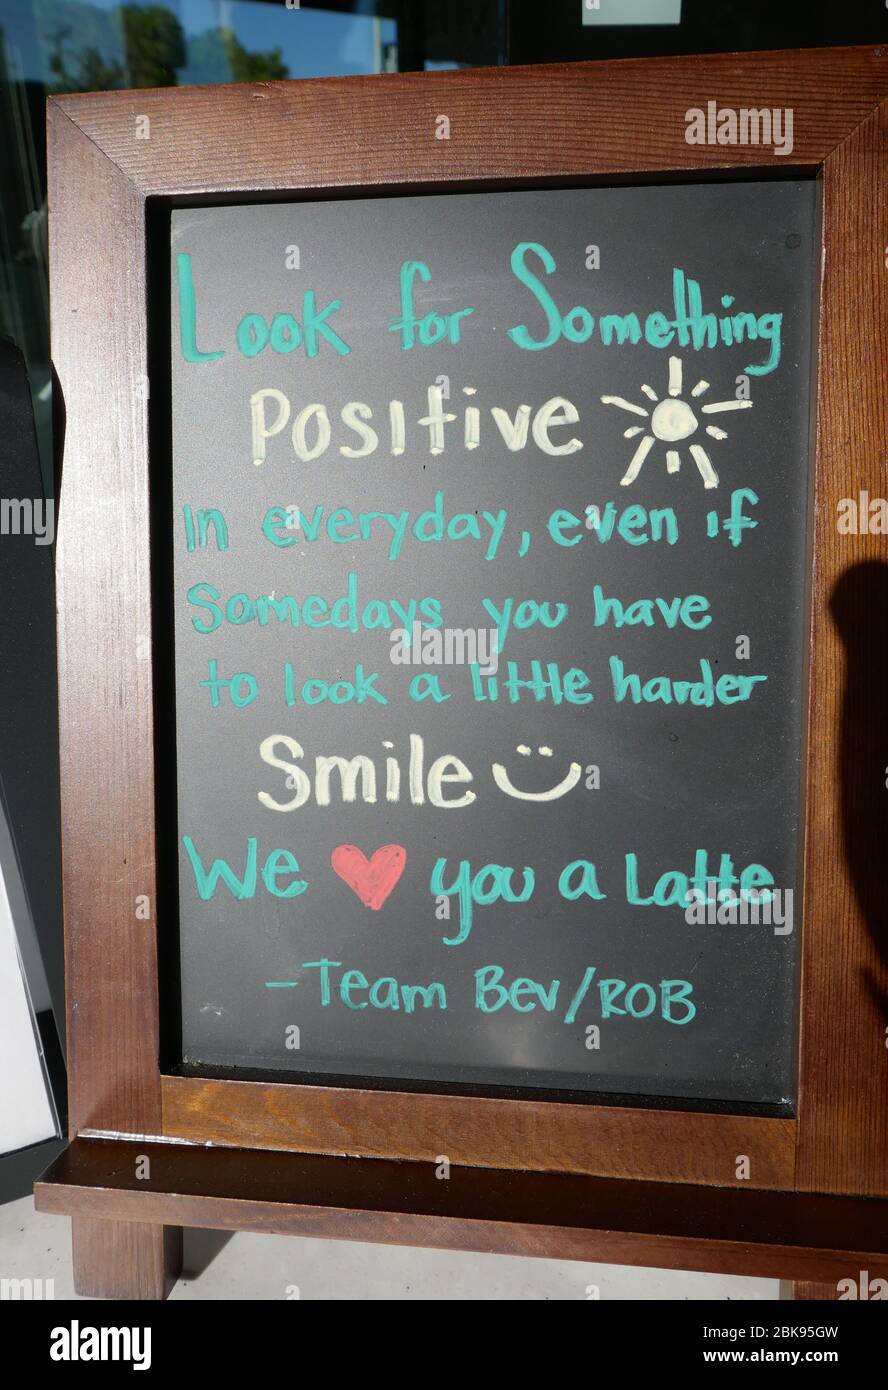 Look for Something
Positive
In everyday, even if
Somedays you have
to look a little harder
Smile
We ❤ you a Latte
-Team Bev/ROB
alamy
alamy
alamy
alamy
alamy
a
a
a
a
Image ID: 2BK95GW
www.alamy.com